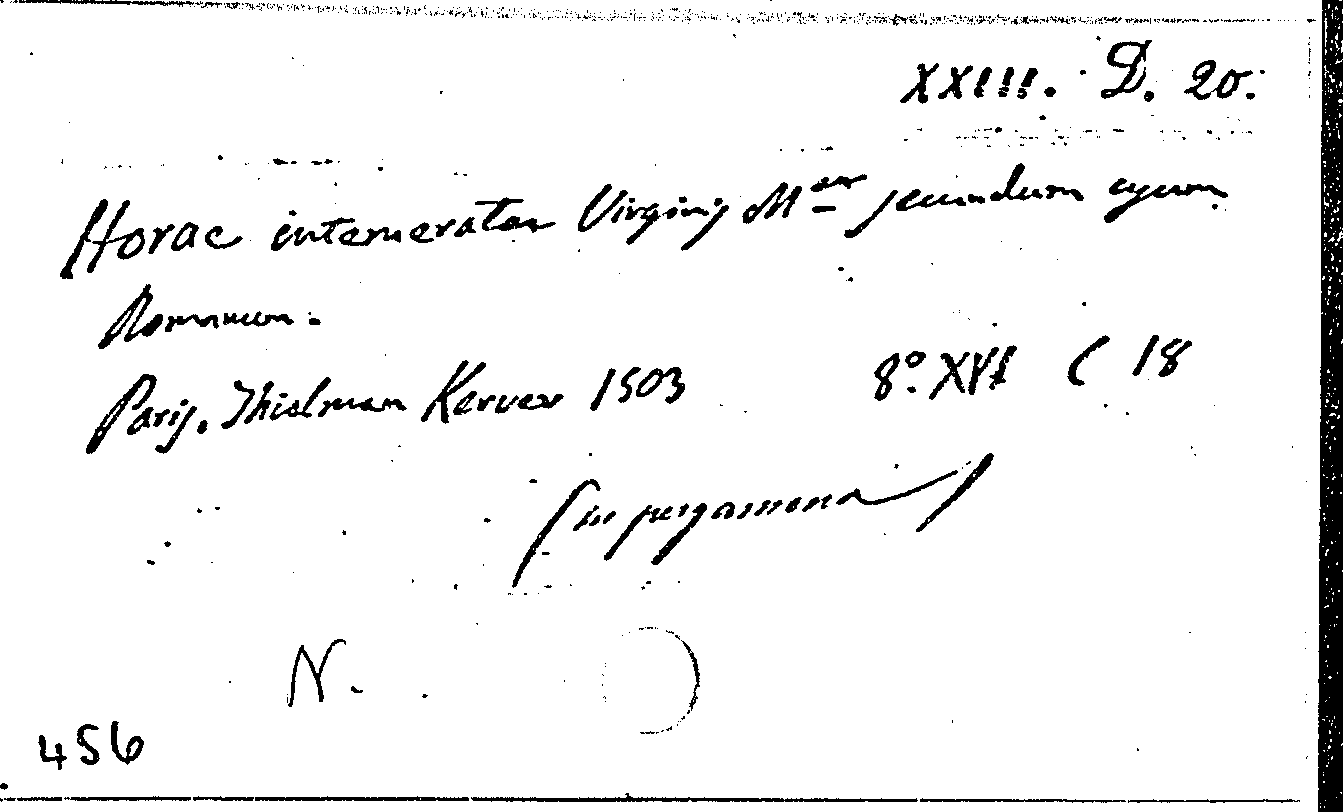 XXIII. D. 20.
Horae intemeratae Virginis Mae secundum usum
Romanum.
Paris. Thielman Kerver 1503 8° XVI C 18
(in pergamena)
N.
456